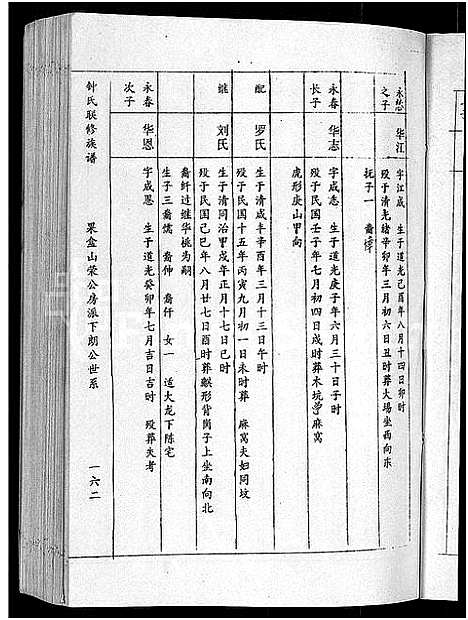 永愁之子
华江
字江成 生于道光己酉年八月十四日卯时
殁于清光绪辛卯年三月初六日丑时葬大塌坐西向东
抚子一 裔
永春长子
华志
字成志 生于道光庚子年六月三十日子时
殁于民国壬子年七月初四日戌时葬木坑麻窝
虎形庚山甲向
配
罗氏
生于清咸丰辛酉年三月十三日午时
殁于民国十五年丙寅九月初一日未时葬 麻窝夫妇同坟
继
刘氏
生于清同治甲戌年正月十七日巳时
殁于民国己巳年八月廿七日酉时葬 形背岗子上坐南向北
裔轩过继华桃为嗣
生子三裔儒 裔伸 裔仟 女一 适大龙下陈宅
永春次子
华恩
字成恩 生于道光癸卯年七月吉日吉时 殁葬失考
钟氏联修族谱
果盒山荣公房派下朗公世系
一六二